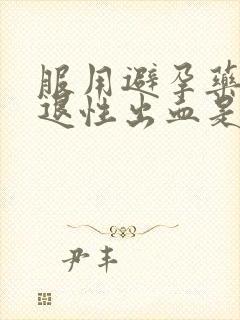 服用避孕药
退性出血是
尹丰